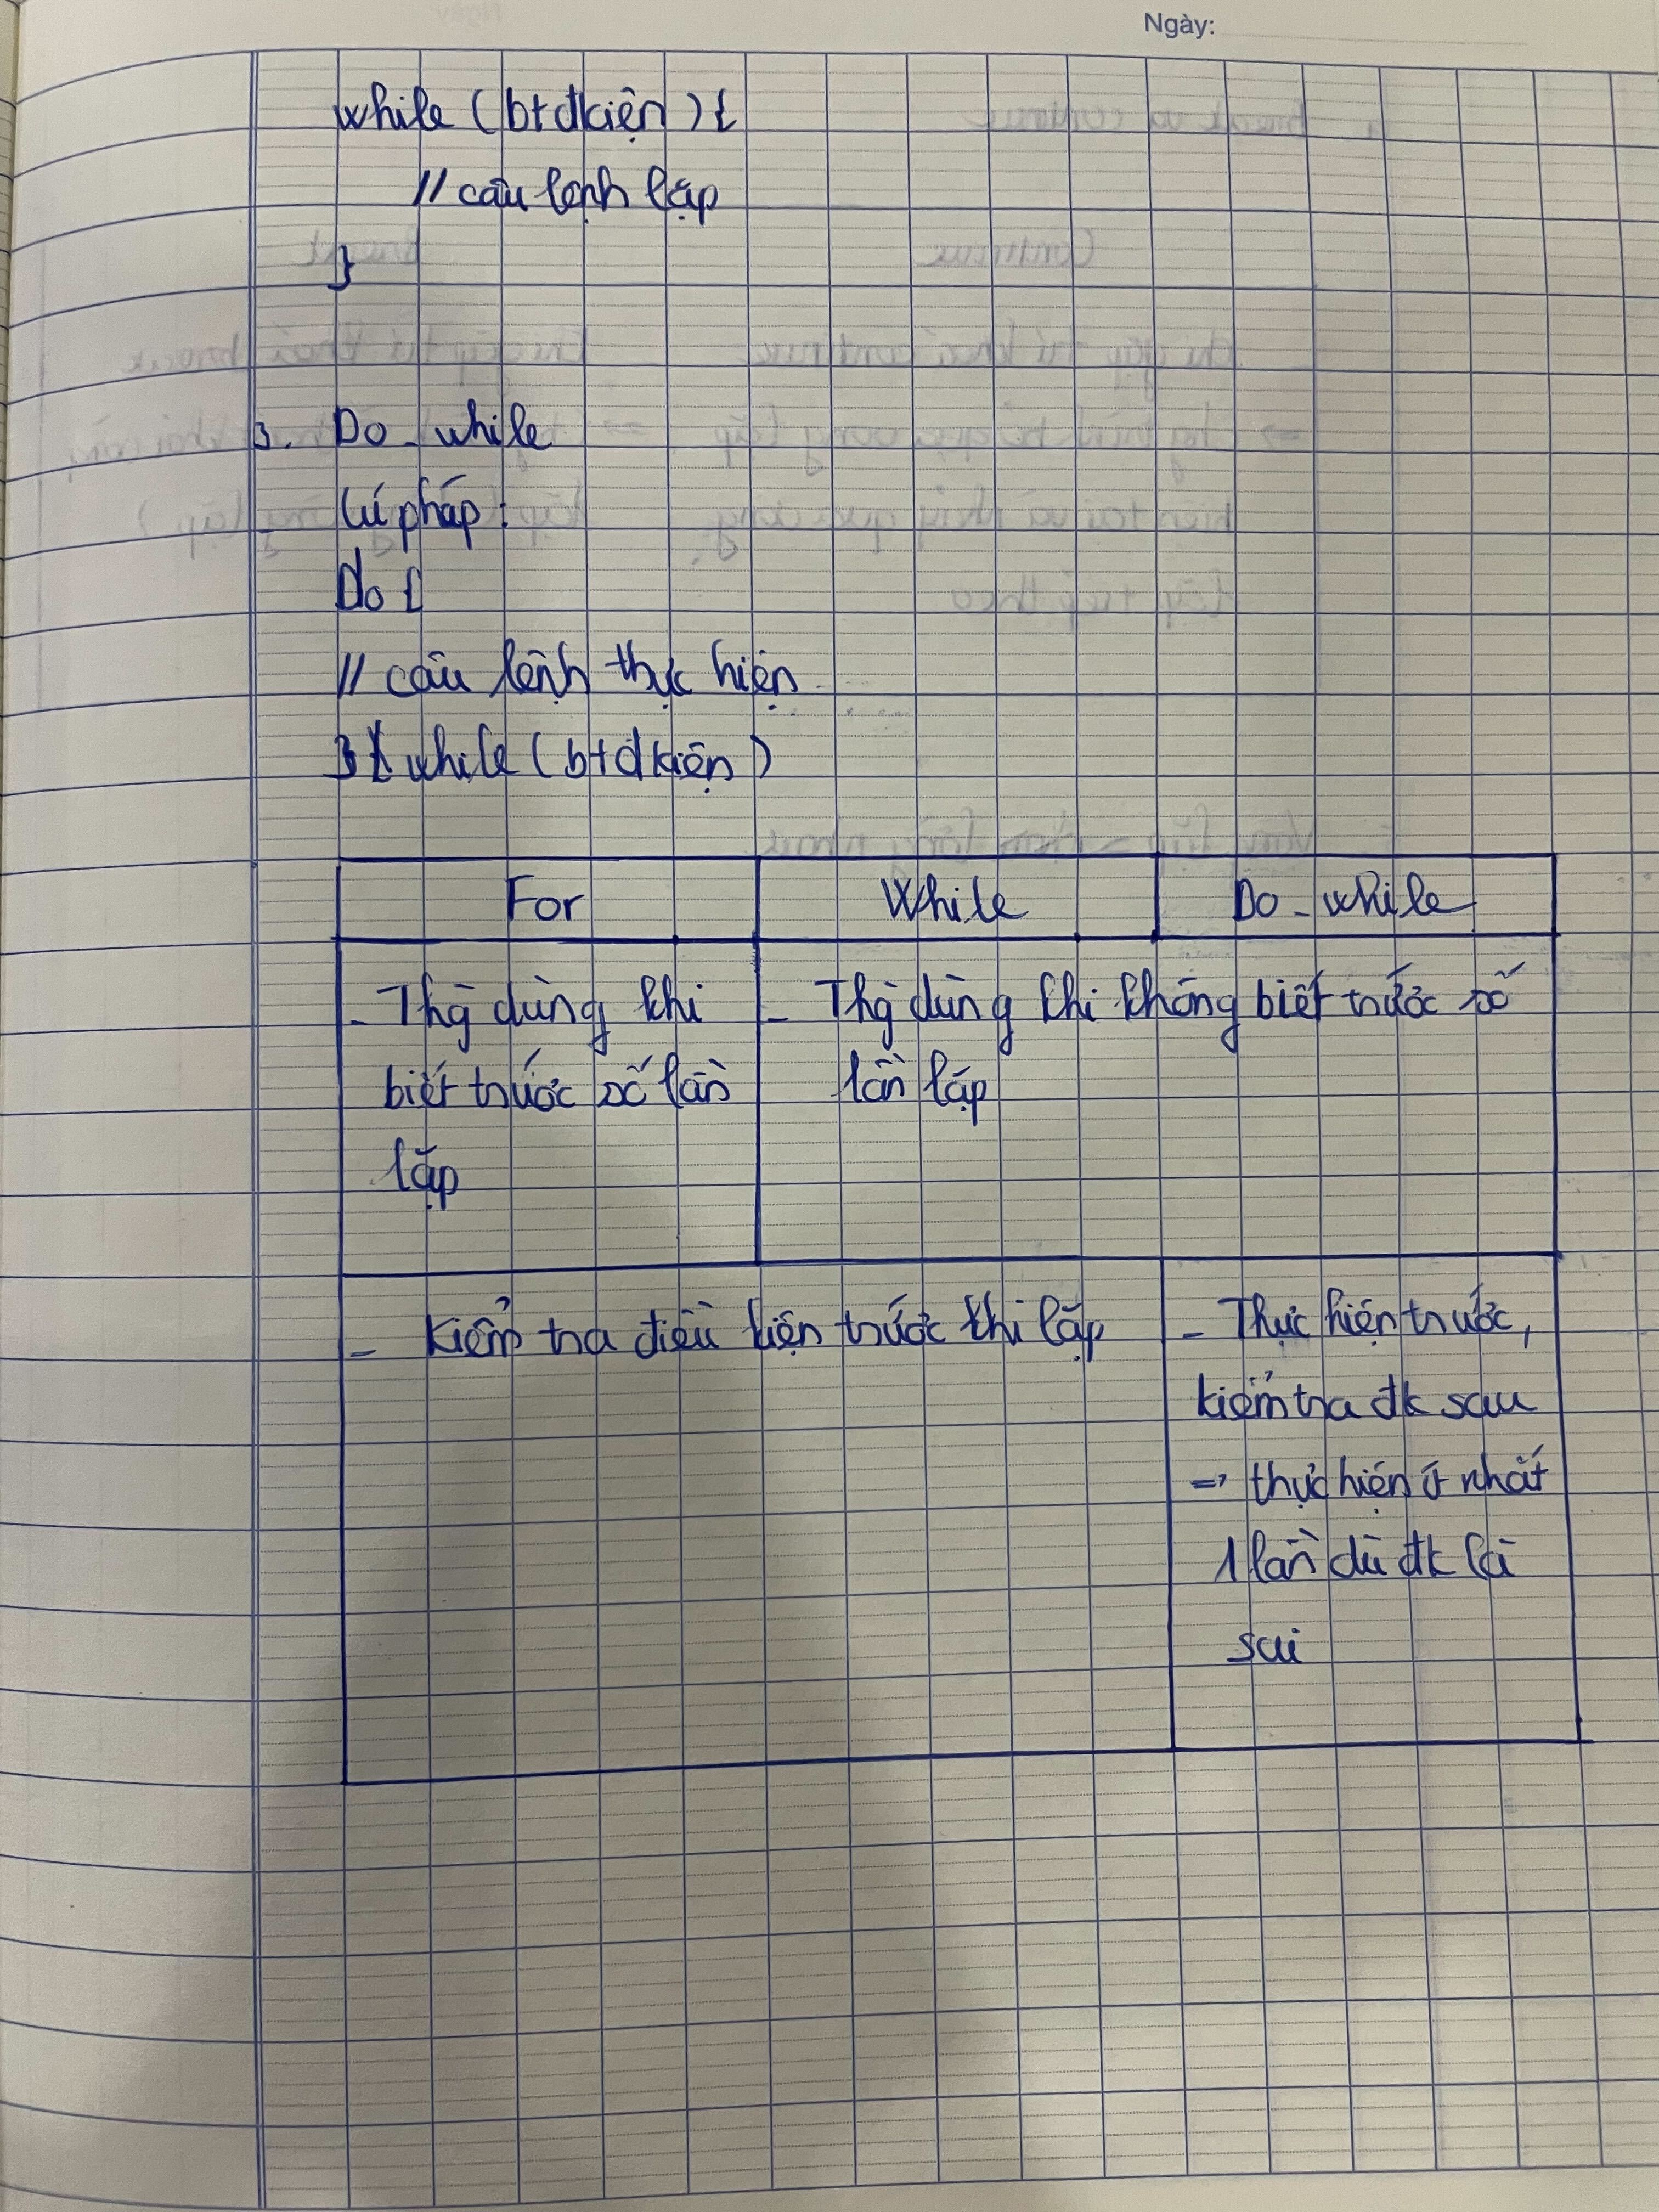 Ngày:
while (btđkiện) {
// câu lệnh lặp
}
3. Do_while
Cú pháp:
Do {
// câu lệnh thực hiện
} while (btđkiện)
For While Do_while
- Thg dùng khi
biết trước số lần
lặp
- Thg dùng khi không biết trước số
lần lặp
- Kiểm tra điều kiện trước khi lặp
- Thực hiện trước,
kiểm tra đk sau
=> thực hiện ít nhất
1 lần dù đk là
sai